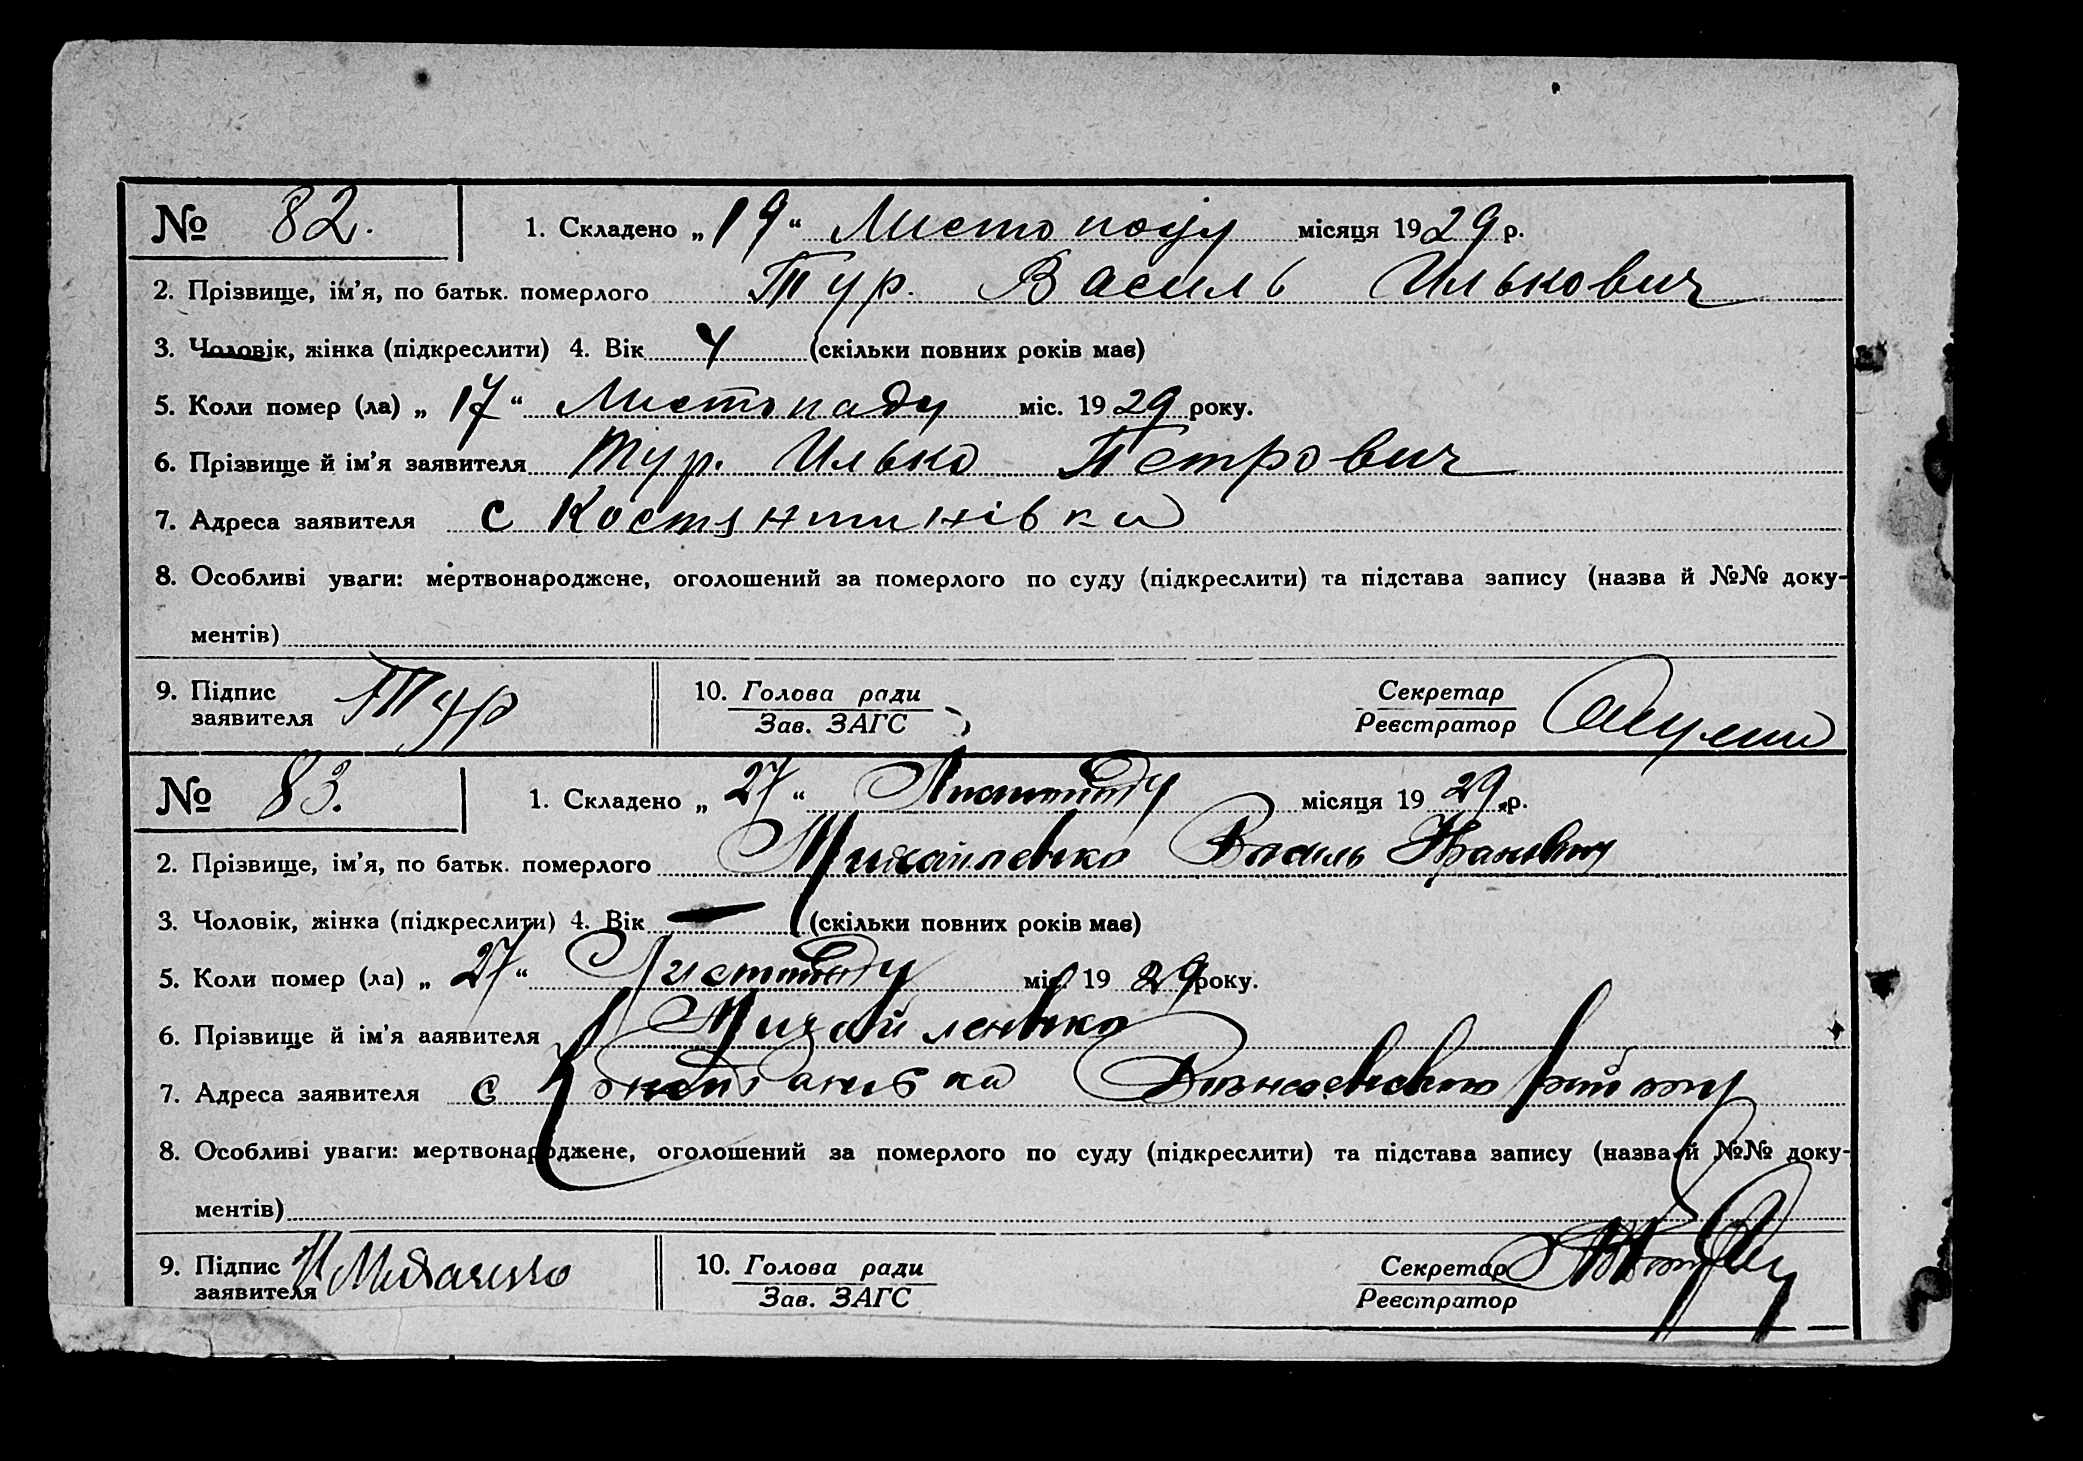 № 82. 1. Складено „19“ Листопаду місяця 1929 р.
2. Прізвище, ім’я, по батьк. померлого Тур. Василь Илькович
3. Чоловік, жінка (підкреслити) 4. Вік 4 (скільки повних років має)
5. Коли помер (ла) „17“ Листопаду міс. 1929 року.
6. Прізвище й ім’я заявителя Тур. Илько Петрович
7. Адреса заявителя с Костянтинівки
8. Особливі уваги: мертвонароджене, оголошений за померлого по суду (підкреслити) та підстава запису (назва й №№ доку-
ментів)
9. Підпис заявителя Тур 10. Голова ради Секретар
Зав. ЗАГС Реєстратор
№ 83. 1. Складено „27“ Листопаду місяця 1929 р.
2. Прізвище, ім’я, по батьк. померлого Михайленко Василь Іванович
3. Чоловік, жінка (підкреслити) 4. Вік — (скільки повних років має)
5. Коли помер (ла) „27“ Листопаду міс. 1929 року.
6. Прізвище й ім’яааявителя Михайленко
7. Адреса заявителя с району
8. Особливі уваги: мертвонароджене, оголошений за померлого по суду (підкреслити) та підстава запису (назва й №№ доку-
ментів)
9. Підпис заявителя 10. Голова ради Секретар
Зав. ЗАГС Реєстратор